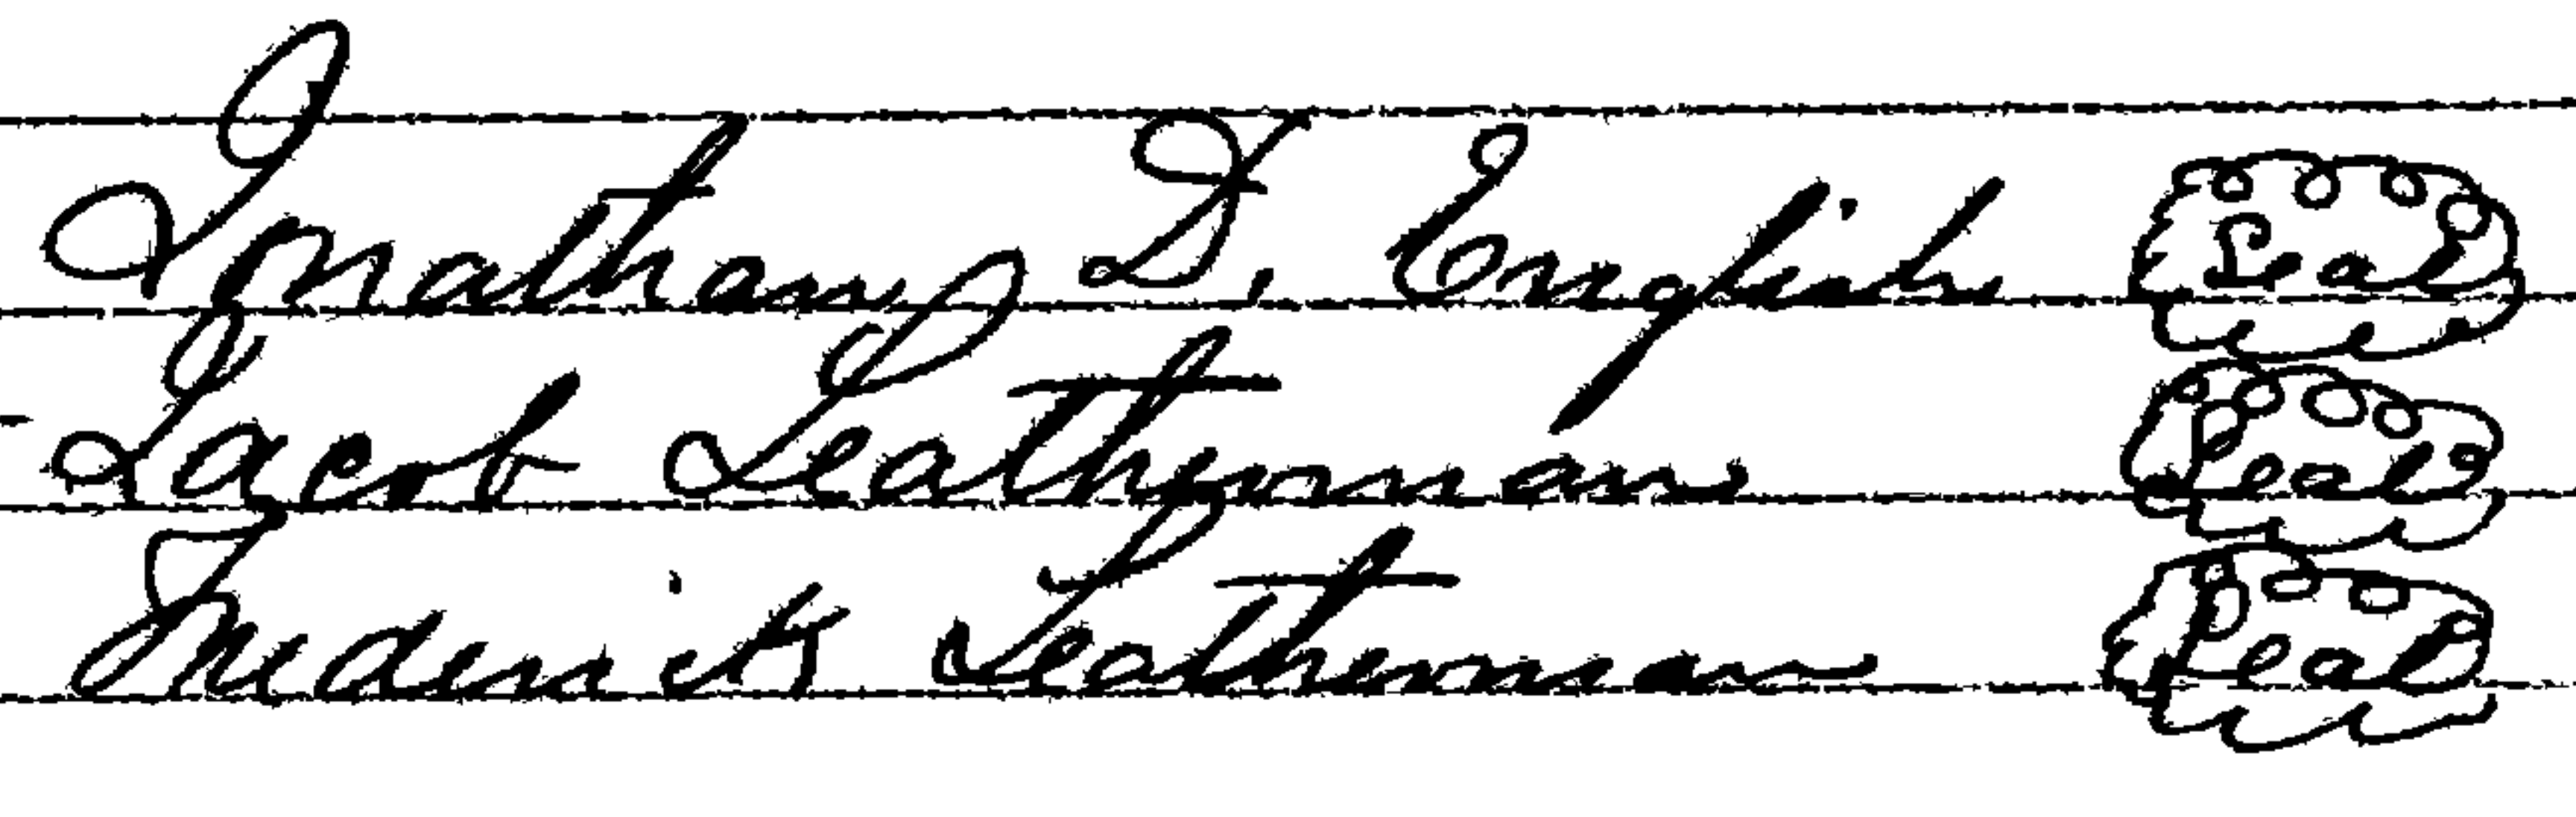 Jonathan D. English Seal
Jacob Leatherman Seal
Frederick Leatherman Seal